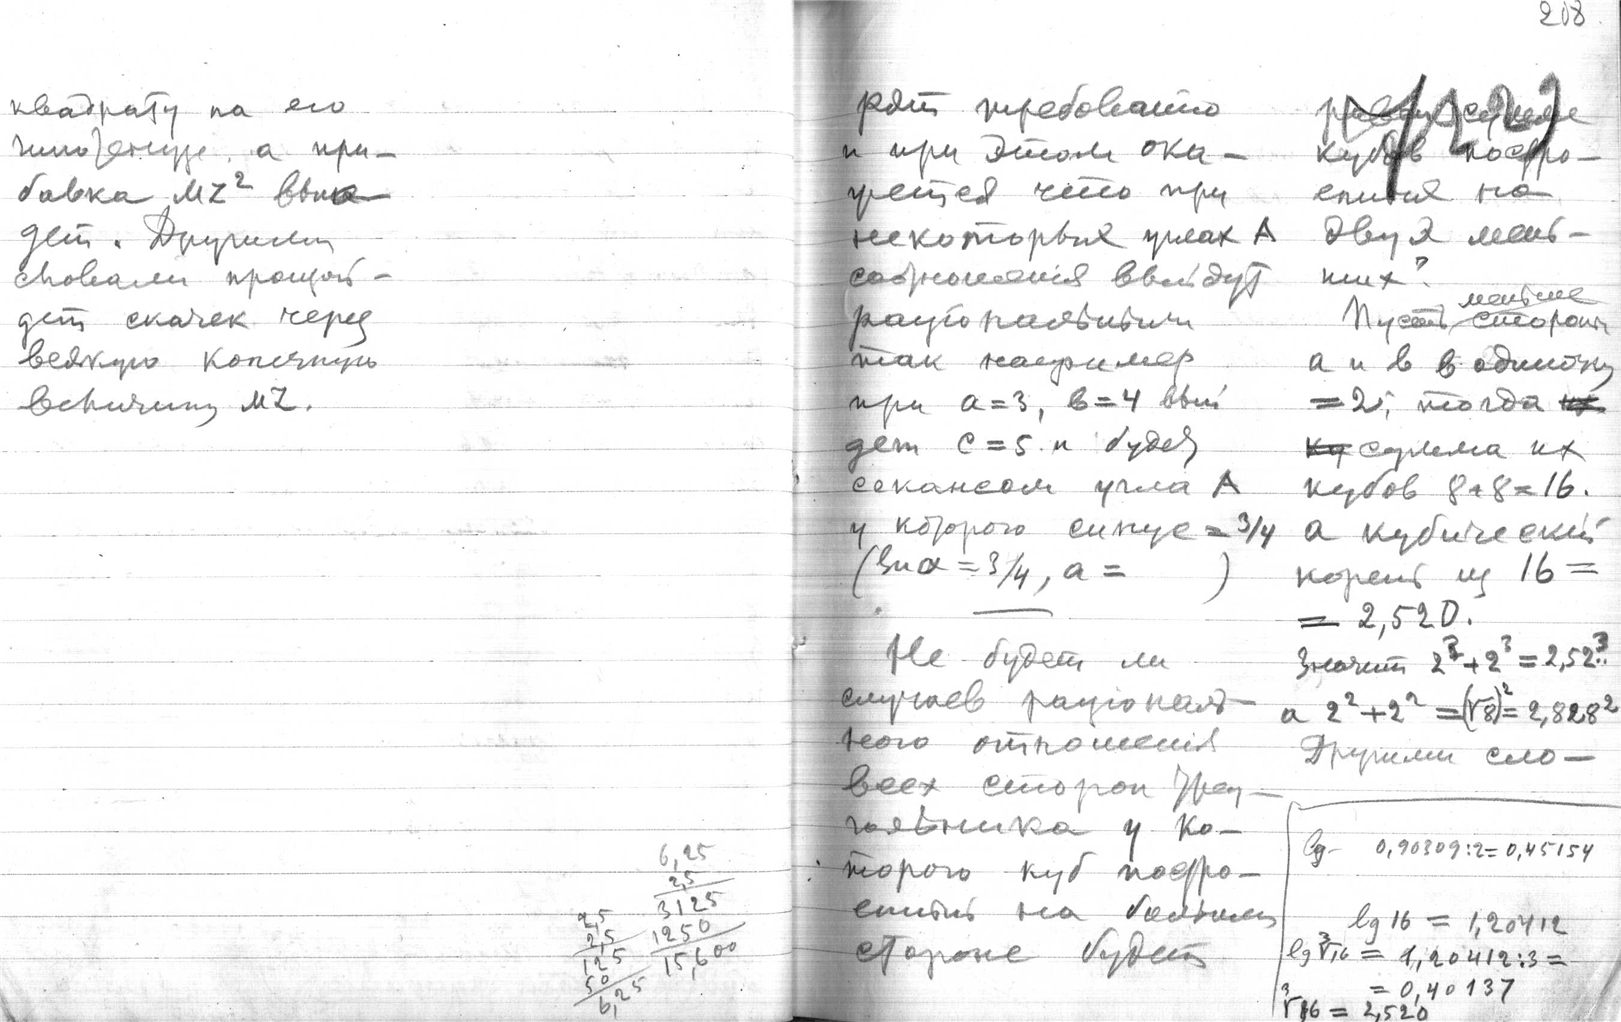 квадрату на его
гипотенузе. а при-
бавка MZ² вы
дет. Другими
словами произой-
дет скачек через
всякую конечную
величину MZ.
6,25
2,5
3125
1250
15,600
2,5
2,5
125
50
6,25
208
рят требованию
и при этом ока-
жется что при
некоторых углах А
соотношения выйдут
рациональными
так например
при а=3, в=4 вый
дет с=5 и будет
секансом угла А
у которого синус = 3/4
(Sin α = 3/4, а = )
Не будет ли
случаев рациональ-
ного отношения
всех сторон треу-
гольника у ко-
торого куб построе-
нный на большей
стороне будет
равен сумме
кубов построе-
нных на
двух мень-
ших?
меньшие
Пусть стороны
а и в в единиц
=2; тогда
сумма их
кубов 8+8=16.
а кубический
корень из 16 =
= 2,520.
Значит 2³+2³=2,52³
а 2²+2² =(√8)²= 2,828²
Другими сло-
lg- 0,90309:2=0,45154
lg 16 = 1,20412
lg ³√16 = 1,20412:3=
= 0,40137
³√16 = 2,520